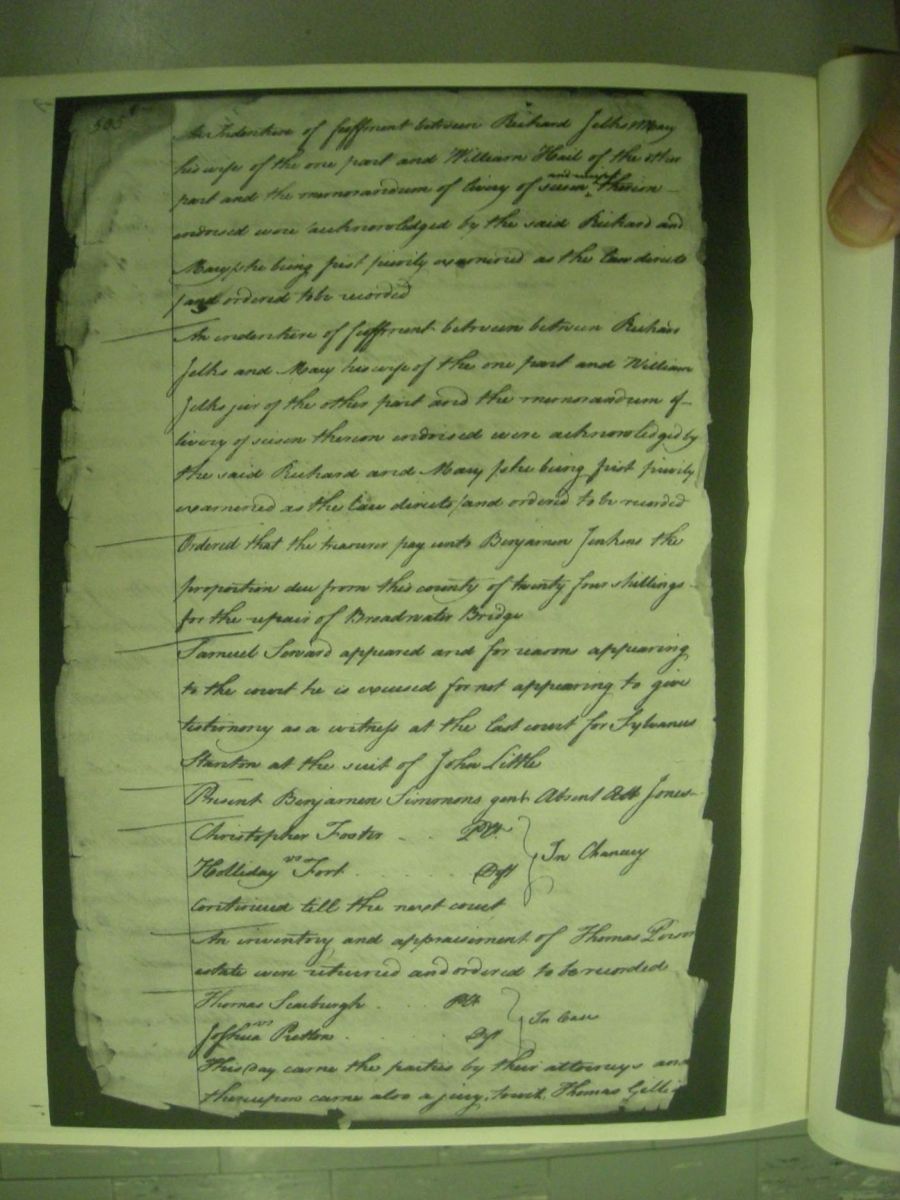 505
An Indenture of feoffment between Richard Jelks & Mary
his wife of the one part and William Hail of the other
part and the memorandum of livery of seisin and receipt thereon
endorsed were acknowledged by the said Richard and
Mary she being first privily examined as the law directs
and ordered to be recorded
An indenture of feoffment between between Richard
Jelks and Mary his wife of the one part and William
Jelks junr of the other part and the memorandum of
livery of seisen thereon endorsed were acknowledged by
the said Richard and Mary she being first privily
examined as the law directs / and ordered to be recorded
Ordered that the treasurer pay unto Benjamen Jenkens the
proportion due from this county of twenty four shillings
for the repair of Broadwater Bridge
Samuel Seward appeared and for reasons appearing
to the court he is excused for not appearing to give
testimony as a witness at the last court for Sylvanus
Stanton at the suit of John Little
Present Benjamen Simmons gent Absent Jones
Christopher Foster Plt
vs In Chancery
Holliday Fort Deft
continued till the next court
An inventory and appraisement of Thomas
estate were returned and ordered to be recorded
Thomas Scarburgh Plt
vs In Case
Joshua Pretlow Deft
This Day came the parties by their attorneys and
thereupon came also a jury, towit, Thomas